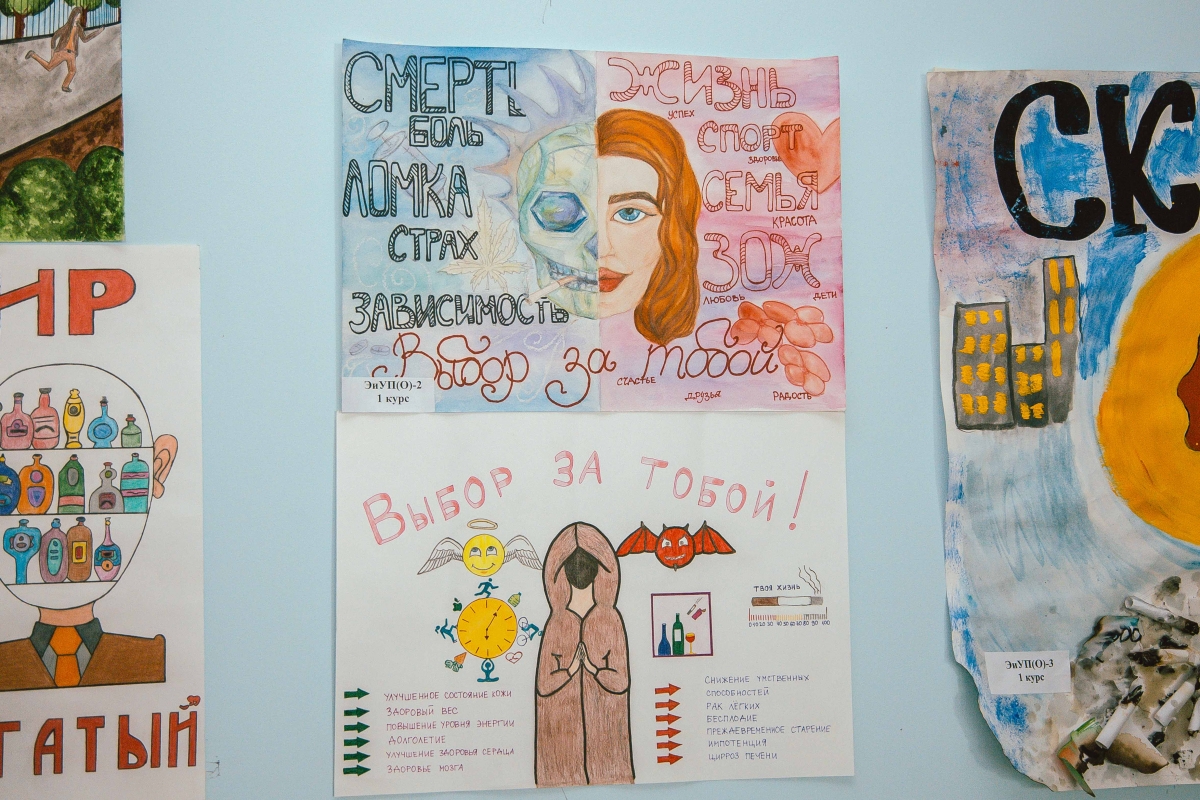 ИР
ГАТЫЙ
СМЕРТЬ
БОЛЬ
ЛОМКА
СТРАХ
ЗАВИСИМОСТЬ
ЖИЗНЬ
УСПЕХ
СПОРТ
ЗДОРОВЬЕ
СЕМЬЯ
КРАСОТА
ЗОЖ
ЛЮБОВЬ
ДЕТИ
Выбор за тобой
СЧАСТЬЕ
ДРУЗЬЯ
РАДОСТЬ
ЭиУП(О)-2
1 курс
ВЫБОР ЗА ТОБОЙ!
ТВОЯ ЖИЗНЬ
УЛУЧШЕННОЕ СОСТОЯНИЕ КОЖИ
ЗДОРОВЫЙ ВЕС
ПОВЫШЕНИЕ УРОВНЯ ЭНЕРГИИ
ДОЛГОЛЕТИЕ
УЛУЧШЕНИЕ ЗДОРОВЬЯ СЕРДЦА
ЗДОРОВЬЕ МОЗГА
СНИЖЕНИЕ УМСТВЕННЫХ
СПОСОБНОСТЕЙ
РАК ЛЁГКИХ
БЕСПЛОДИЕ
ПРЕЖДЕВРЕМЕННОЕ СТАРЕНИЕ
ИМПОТЕНЦИЯ
ЦИРРОЗ ПЕЧЕНИ
СК
ЭиУП(О)-3
1 курс